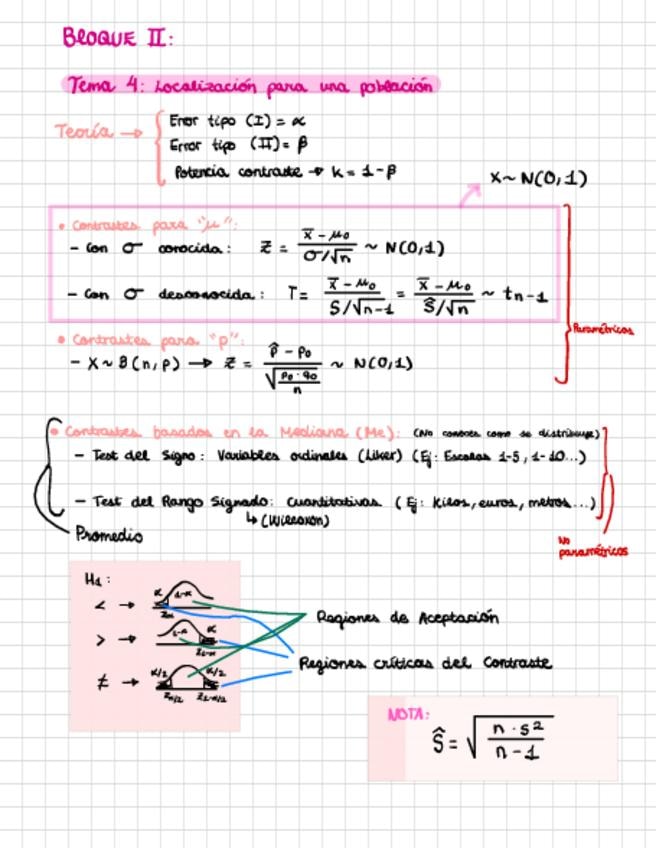 BLOQUE II:
Tema 4: Localización para una población
Teoría → Error tipo (I) = α
Error tipo (II) = β
Potencia contraste → k = 1-β
X ~ N(0,1)
• Contrastes para "μ":
- Con σ conocida: Z = (x̄ - μ₀) / (σ/√n) ~ N(0,1)
- Con σ desconocida: T = (x̄ - μ₀) / (S/√n-1) = (x̄ - μ₀) / (Ŝ/√n) ~ tn-1
Paramétricos
• Contrastes para "p":
- X ~ B(n,p) → Z = (p̂ - p₀) / √(p₀·q₀ / n) ~ N(0,1)
• Contrastes basados en la Mediana (Me): (No conoces como se distribuye)
- Test del Signo: Variables ordinales (Liker) (Ej: Escalas 1-5, 1-10...)
- Test del Rango Signado: Cuantitativas (Ej: Kilos, euros, metros...)
↳ (Wilcoxon)
Promedio
No paramétricos
H₁:
< → α 1-α Zα
> → 1-α α Z1-α
≠ → α/2 α/2 Zα/2 Z1-α/2
Regiones de Aceptación
Regiones críticas del Contraste
NOTA:
Ŝ = √(n·s² / n-1)